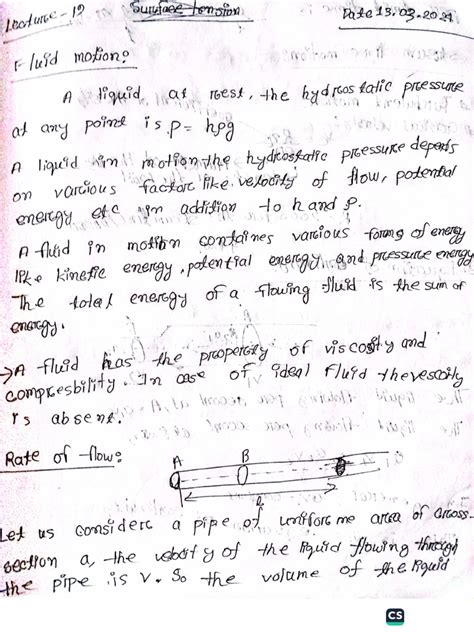 Lecture - 12
Surface tension
Date 13.03.2024
Fluid motion:
A liquid at rest, the hydrostatic pressure
at any point is p = hρg
A liquid in motion the hydrostatic pressure depends
on various factors like velocity of flow, potential
energy etc in addition to h and ρ.
A fluid in motion containes various forms of energy
like kinetic energy, potential energy and pressure energy
The total energy of a flowing fluid is the sum of
energy.
→ A fluid has the property of viscosity and
compresbility. In case of ideal fluid the vescosity
is absent.
Rate of flow:
A B
l
Let us considere a pipe of uniforme area of cross-
section a, the velosity of the liquid flowing through
the pipe is v. So the volume of the liquid
CS